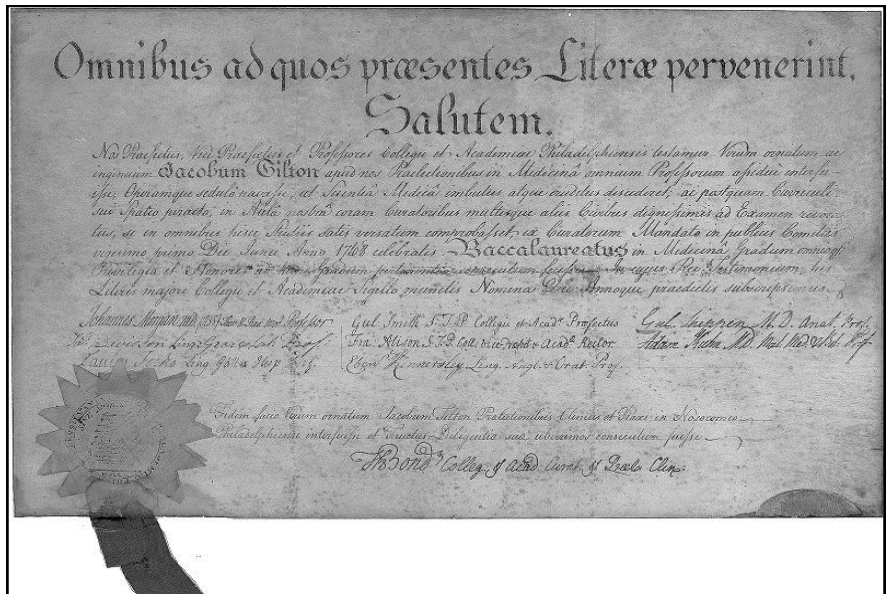 Omnibus ad quos præsentes Literæ pervenerint,
Salutem.
Nos Praefectus, Vice Praefectus et Professores Collegii et Academiae Philadelphiensis testamur Virum ornatum ac
ingenuum Jacobum Tilton apud nos Praelectionibus in Medicinâ omnium Professorum assidue interfu-
isse, Operamque sedulò navasse, et Scientiâ Medicâ imbutus, atque eruditus discederet, ac postquam Curriculi
sui Spatio peracto, in Aulâ nostrâ coram Curatoribus multisque aliis Civibus dignissimis ad Examen revoca-
tus, se in omnibus hisce Studiis satis versatum comprobasset, ex Curatorum Mandato in publicis Comitiis
vigesimo primo Die Junii Anno 1768 celebratis Baccalaureatus in Medicinâ Gradum omniaq
Privilegia et Honores ad Gradum consecutum fuisse In cujus Rei Testimonium, his
Literis majori Collegii et Academiae Sigillo munitis Nomina Die Annoque praedictis subscripsimus
Johannes Morgan M.D. Professor
Gul Smith S.T.P. Collegii et Acad. Præfectus
Gul. Shippen M.D. Anat. Prof.
Ja. Davidson Ling. Prof.
Fra Alison S.T.P. Coll. Vice-Præfect & Acad. Rector
Adam Kuhn M.D. Mat. Med. & Bot. Prof
Ling Gall & Hisp
Eben. Kinnersley Ling. Angl. & Orat. Prof.
Fidem facio Virum ornatum Jacobum Tilton Prælectionibus Clinicis et Praxi in Nosocomio
Philadelphiensi interfuisse et Fructus Diligentia sua uberrimos consecutum fuisse
Bond Colleg. & Acad. Curat. & Prælec Clin.